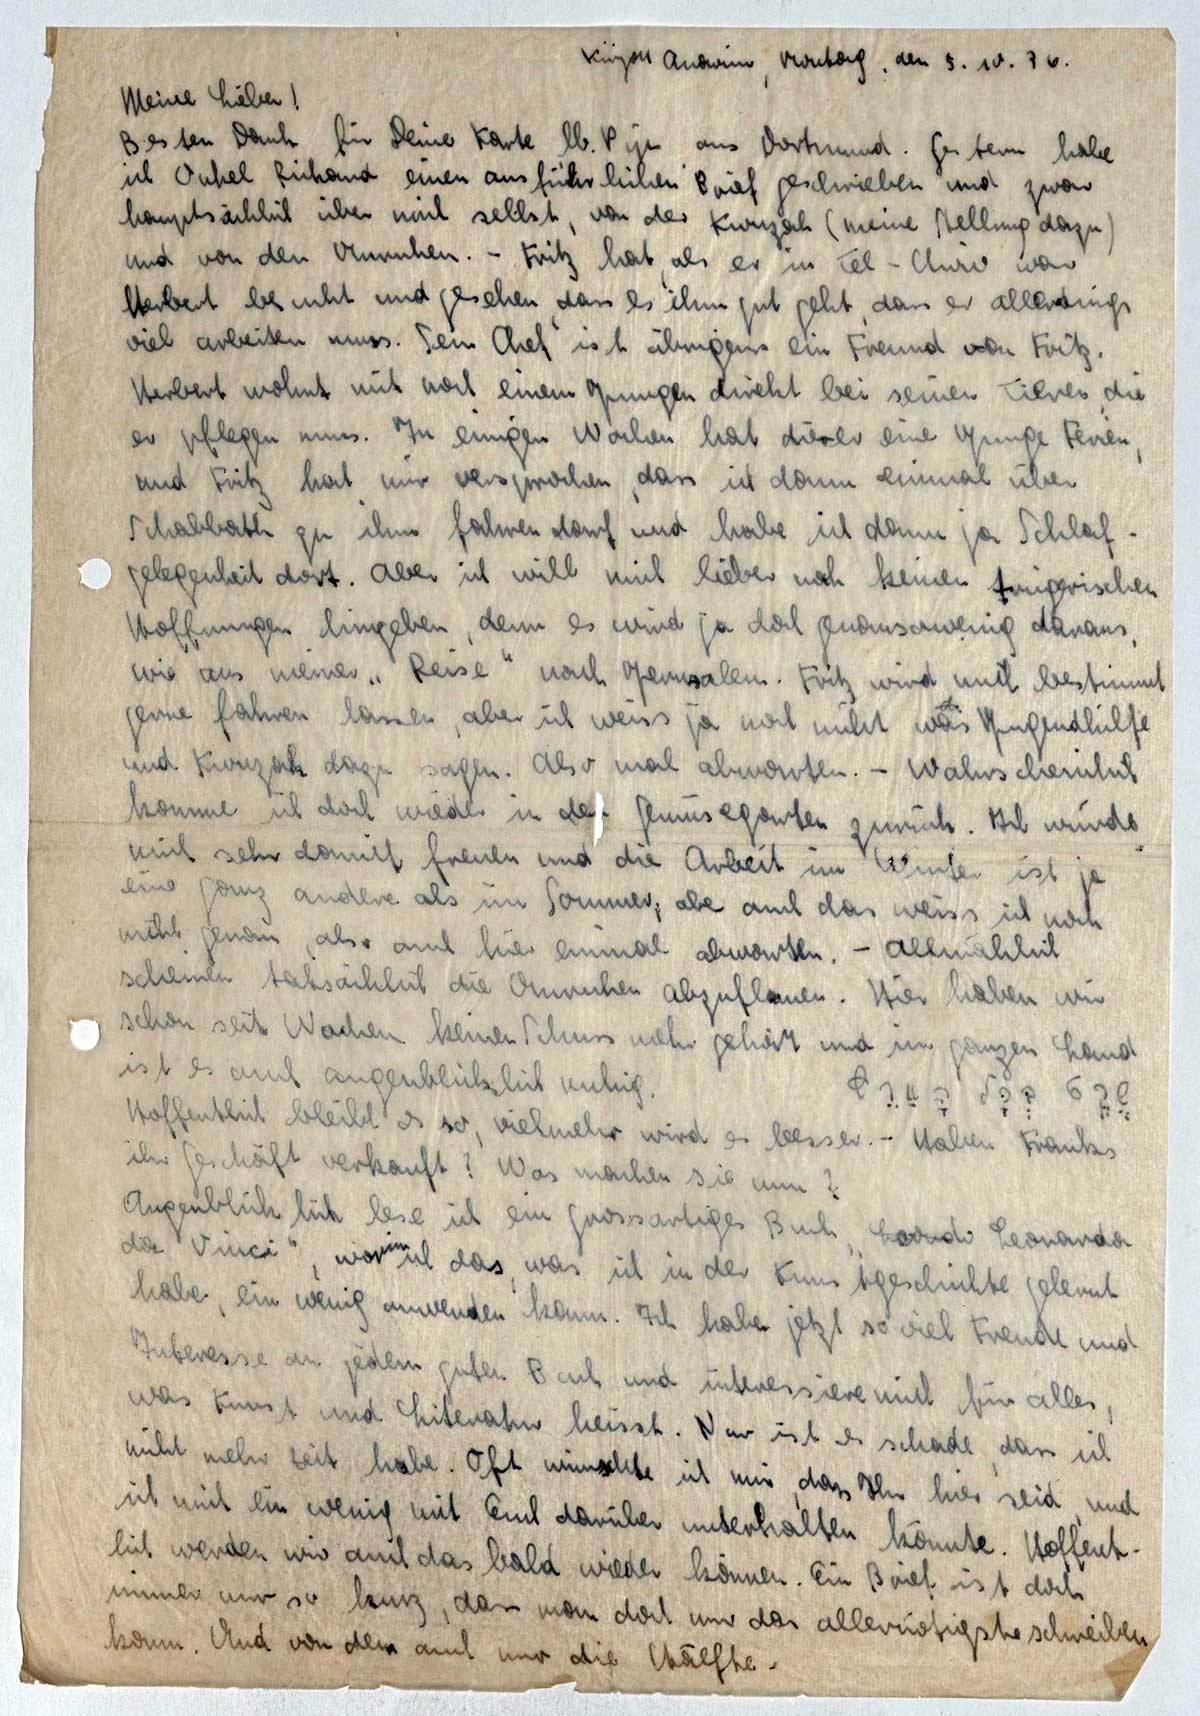 Kirjath Anavim, Montag, den 5. 10. 36.
Meine Lieben!
Besten Dank für Deine Karte lb. Pija aus Dortmund. Gestern habe
ich Onkel Richard einen ausführlichen Brief geschrieben und zwar
hauptsächlich über mich selbst, von der Kwuzah (meine Stellung dazu)
und von den Unruhen. - Fritz hat, als er in Tel-Aviv war
Herbert besucht und gesehen, dass es ihm gut geht, dass er allerdings
viel arbeiten muss. Sein "Chef" ist übrigens ein Freund von Fritz.
Herbert wohnt mit noch einem Jungen direkt bei seinen Tieren, die
er pflegen muss. In einigen Wochen hat dieser eine Junge Ferien,
und Fritz hat mir versprochen, dass ich dann einmal über
Schabbath zu ihm fahren darf und habe ich dann ja Schlaf-
gelegenheit dort. Aber ich will mich lieber noch keinen trügerischen
Hoffnungen hingeben, denn es wird ja doch genausowenig daraus,
wie aus meiner „Reise" nach Jerusalem. Fritz wird mich bestimmt
gerne fahren lassen, aber ich weiss ja noch nicht was Jugendhilfe
und Kwuzah dazu sagen. Also mal abwarten. - Wahrscheinlich
komme ich doch wieder in den Gemüsegarten zurück. Ich würde
mich sehr damit freuen und die Arbeit im Winter ist ja
eine ganz andere als im Sommer, abe auch das weiss ich noch
nicht genau, also auch hier einmal abwarten. - Allmählich
scheinen tatsächlich die Unruhen abzuflauen. Hier haben wir
schon seit Wochen keinen Schuss mehr gehört und im ganzen Land
ist es auch augenblicklich ruhig.
Hoffentlich bleibt es so, vielmehr wird es besser. - Haben Franks
ihr Geschäft verkauft? Was machen sie nun?
Augenblicklich lese ich ein grossartiges Buch „Leonardo
da Vinci", worin ich das, was ich in der Kunstgeschichte gelernt
habe, ein wenig anwenden kann. Ich habe jetzt so viel Freude und
Interesse an jedem guten Buch und interessiere mich für alles,
was Kunst und Literatur heisst. Nur ist es schade, dass ich
nicht mehr Zeit habe. Oft wünschte ich mir, dass Ihr hier seid, und
ich mich ein wenig mit Euch darüber unterhalten könnte. Hoffent-
lich werden wir auch das bald wieder können. Ein Brief ist doch
immer nur so kurz, dass man doch nur das allernötigste schreiben
kann. Und von dem auch nur die Hälfte.